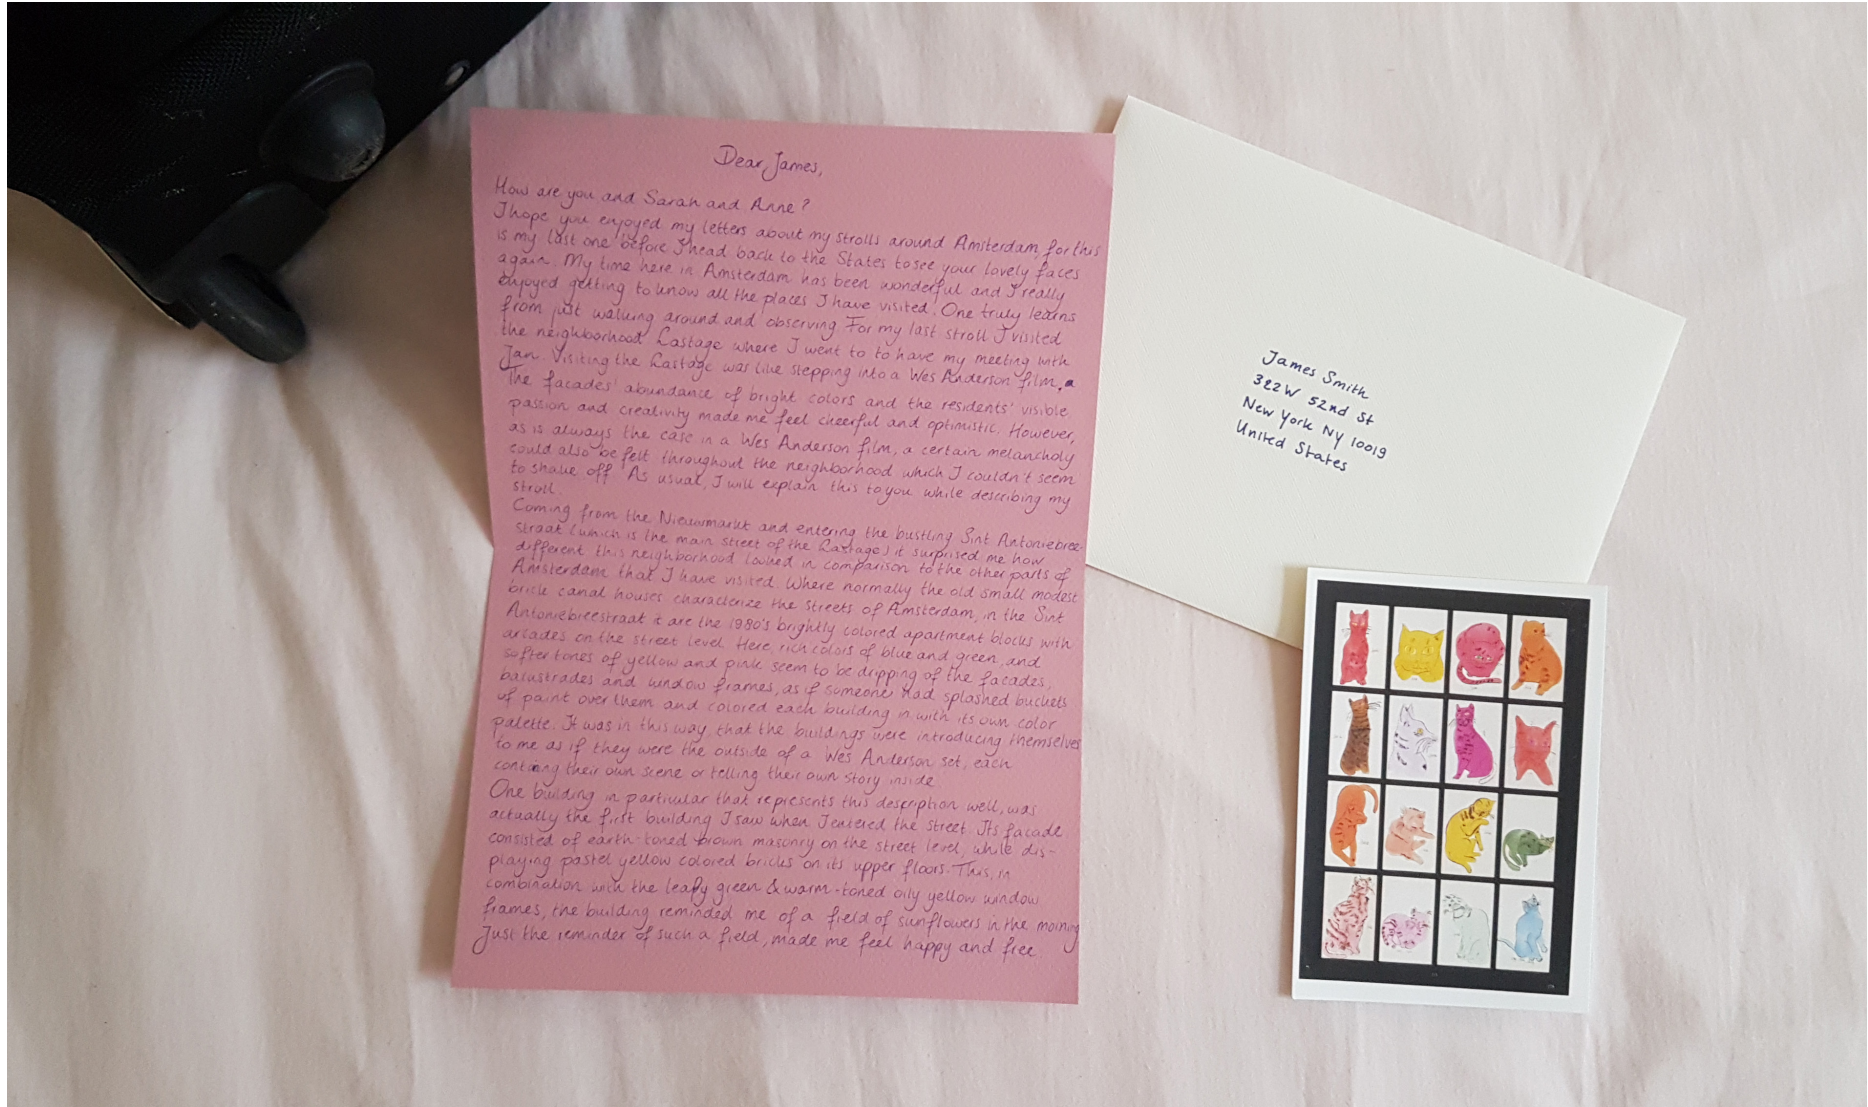 Dear James,
How are you and Sarah and Anne?
I hope you enjoyed my letters about my strolls around Amsterdam, for this
is my last one before I head back to the States to see your lovely faces
again. My time here in Amsterdam has been wonderful and I really
enjoyed getting to know all the places I have visited. One truly learns
from just walking around and observing. For my last stroll I visited
the neighborhood Lastage where I went to to have my meeting with
Jan. Visiting the Lastage was like stepping into a Wes Anderson film.
The facades' abundance of bright colors and the residents' visible
passion and creativity made me feel cheerful and optimistic. However,
as is always the case in a Wes Anderson film, a certain melancholy
could also be felt throughout the neighborhood which I couldn't seem
to shake off. As usual, I will explain this to you while describing my
stroll.
Coming from the Nieuwmarkt and entering the bustling Sint Antoniebree-
straat (which is the main street of the Lastage) it surprised me how
different this neighborhood looked in comparison to the other parts of
Amsterdam that I have visited. Where normally the old small modest
brick canal houses characterize the streets of Amsterdam, in the Sint
Antoniebreestraat it are the 1980's brightly colored apartment blocks with
arcades on the street level. Here, rich colors of blue and green, and
softer tones of yellow and pink seem to be dripping of the facades,
balustrades and window frames, as if someone had splashed buckets
of paint over them and colored each building in with its own color
palette. It was in this way that the buildings were introducing themselves
to me as if they were the outside of a Wes Anderson set, each
containg their own scene or telling their own story inside.
One building in particular that represents this description well, was
actually the first building I saw when I entered the street. Its facade
consisted of earth-toned brown masonry on the street level, while dis-
playing pastel yellow colored bricks on its upper floors. This, in
combination with the leafy green & warm-toned oily yellow window
frames, the building reminded me of a field of sunflowers in the morning
Just the reminder of such a field, made me feel happy and free.
James Smith
322W 52nd St
New York NY 10019
United States